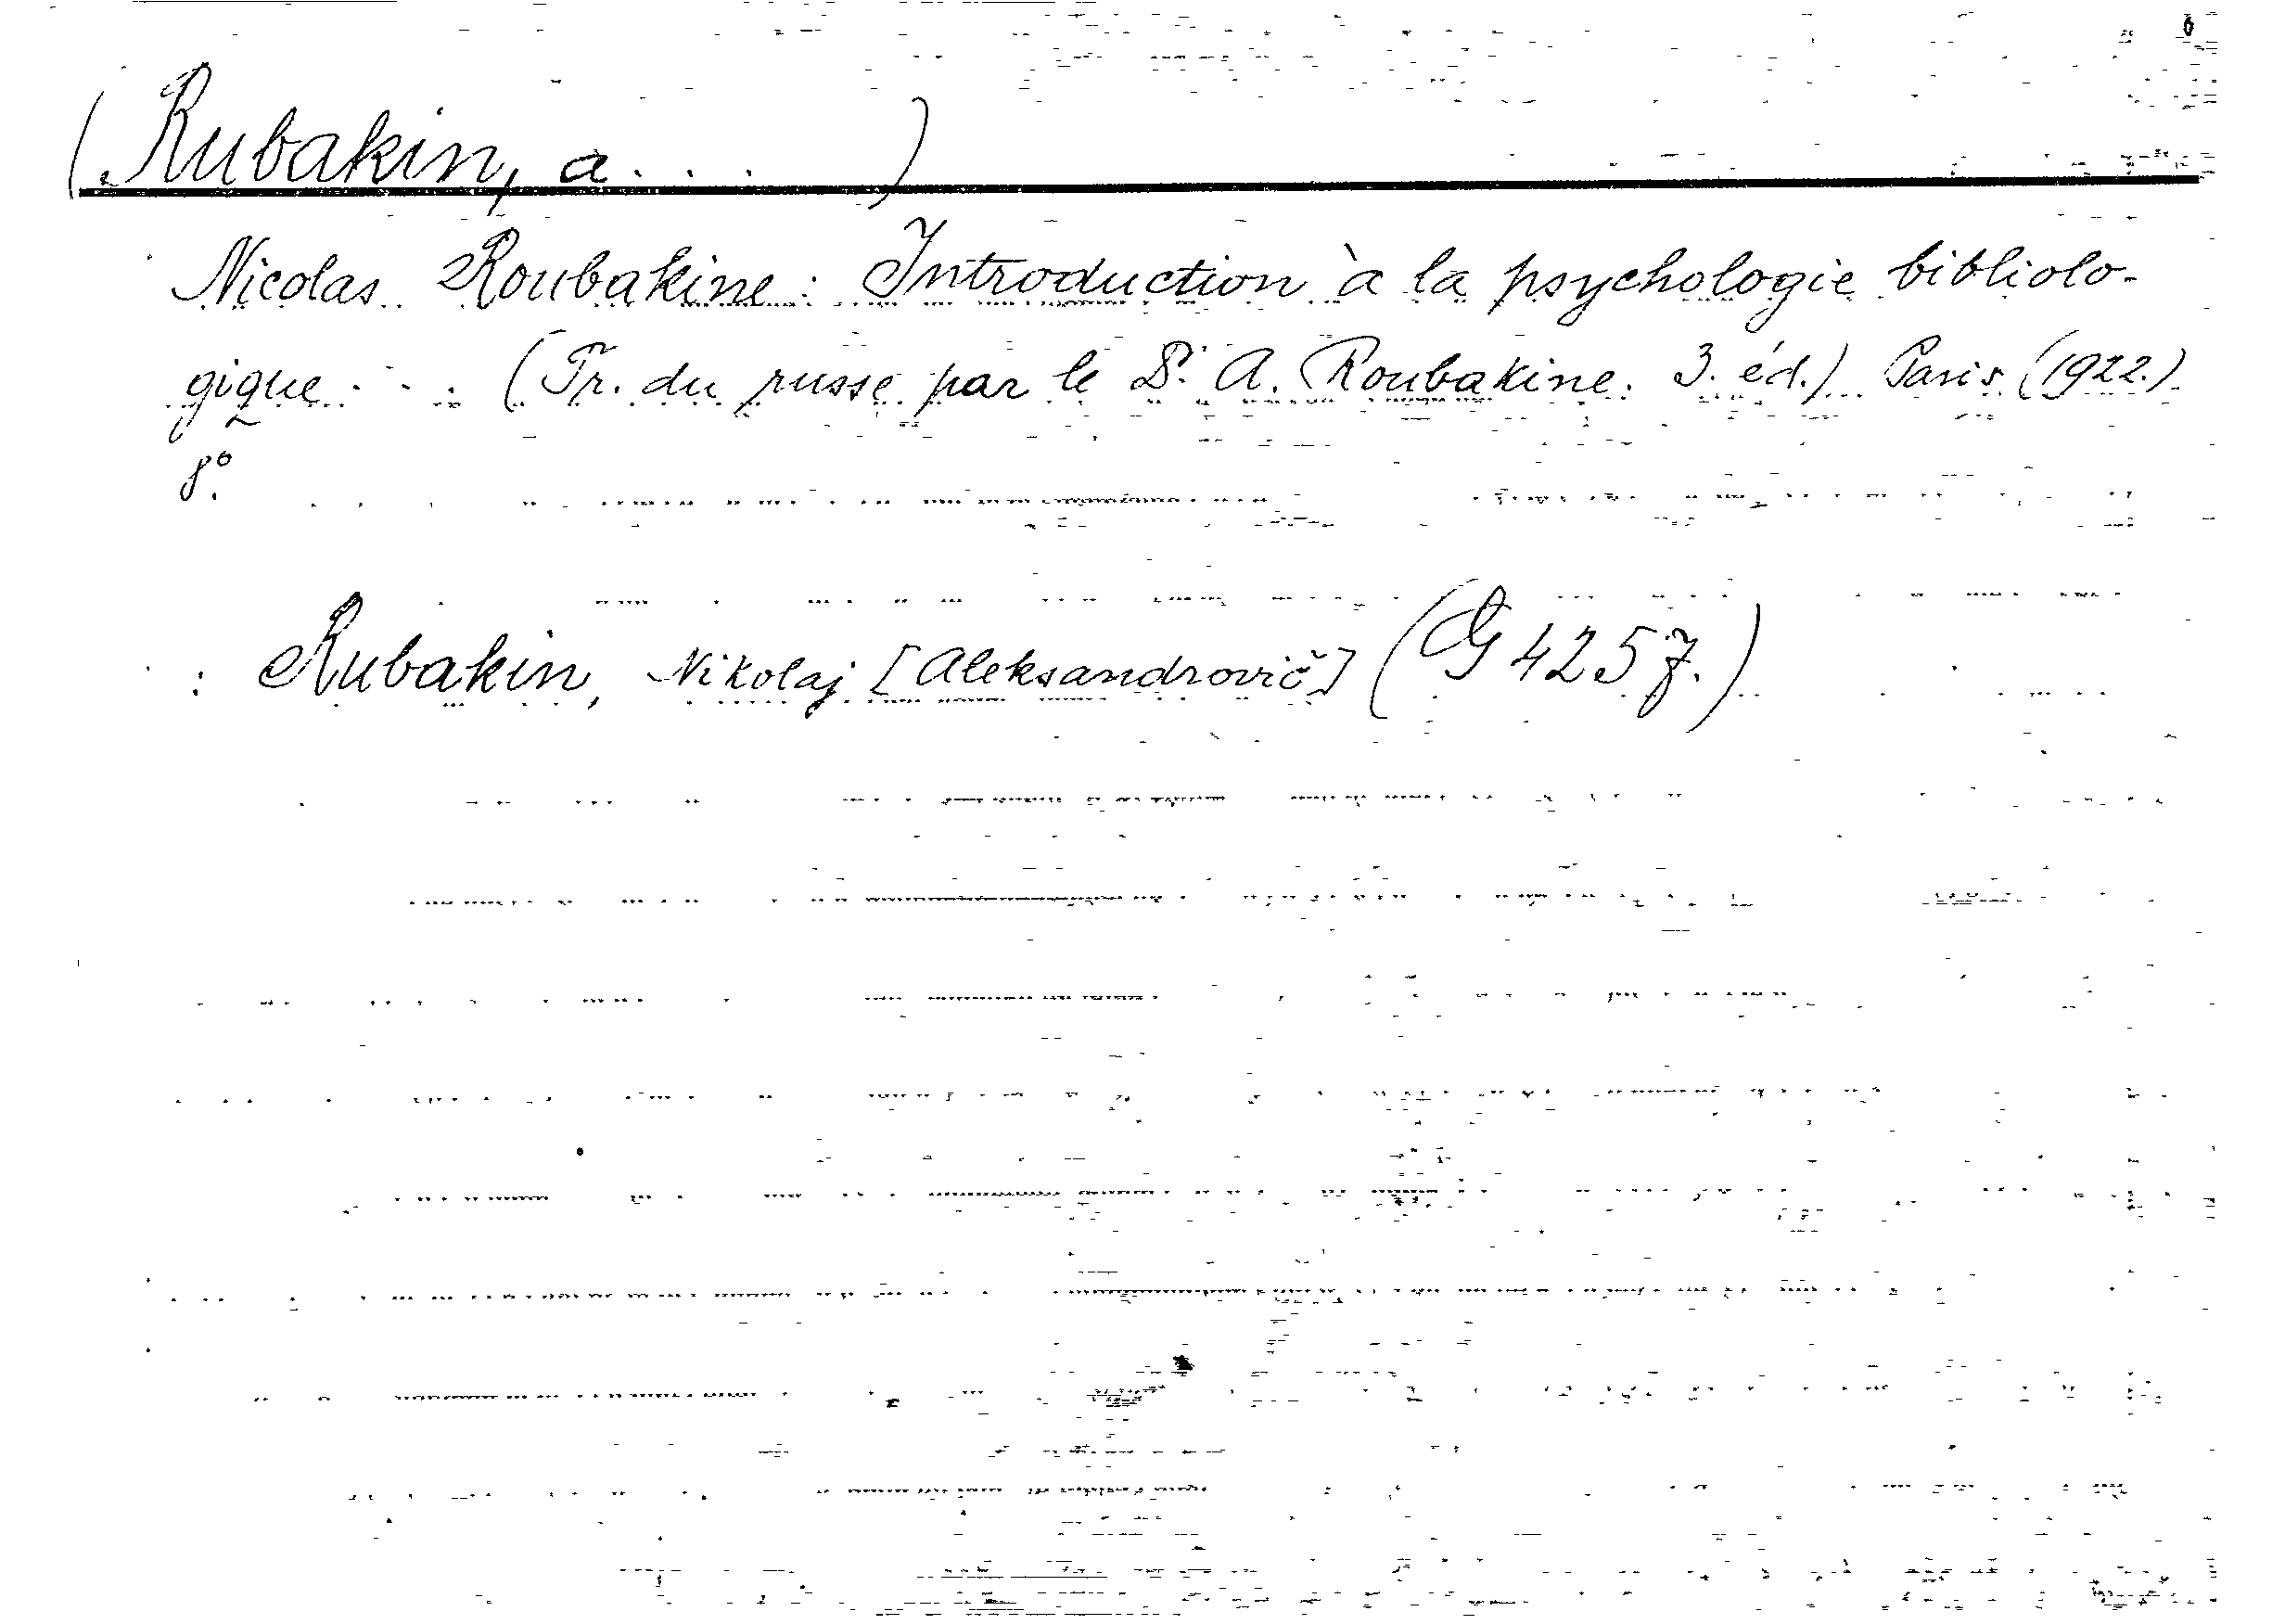 (Rubakin, A . . . )
Nicolas Roubakine: Introduction à la psychologie bibliolo-
gique . . . (Tr. du russe par le Dr. A. Roubakine. 3. éd.) Paris (1922.)
8°.
: Rubakin, Nikolaj [Aleksandrovič] (G 4257.)